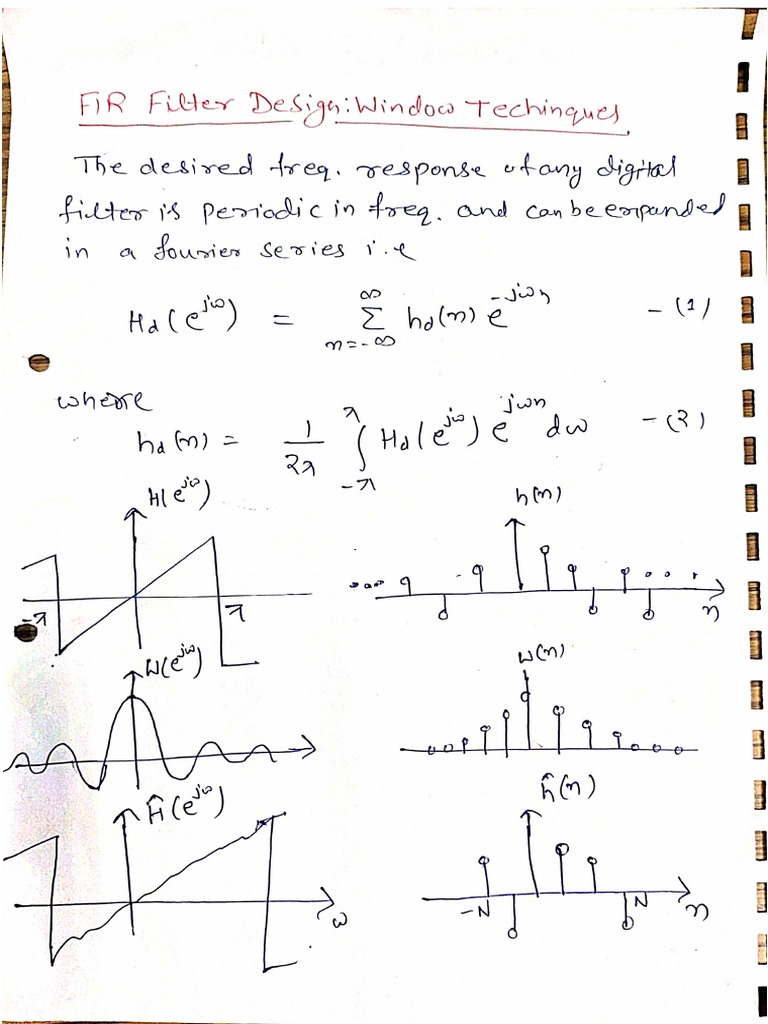 FIR Filter Design: Window Techinques
The desired freq. response of any digital
filter is periodic in freq. and can be expanded
in a fourier series i.e
Hd(e^jω) = ∑_{n=-∞}^{∞} hd(n) e^-jωn -(1)
where
hd(n) = 1/2π ∫_{-π}^{π} Hd(e^jω) e^jωn dω -(2)
H(e^jω) h(n)
-π π n
W(e^jω) w(n)
Ĥ(e^jω) ĥ(n)
ω -N N n